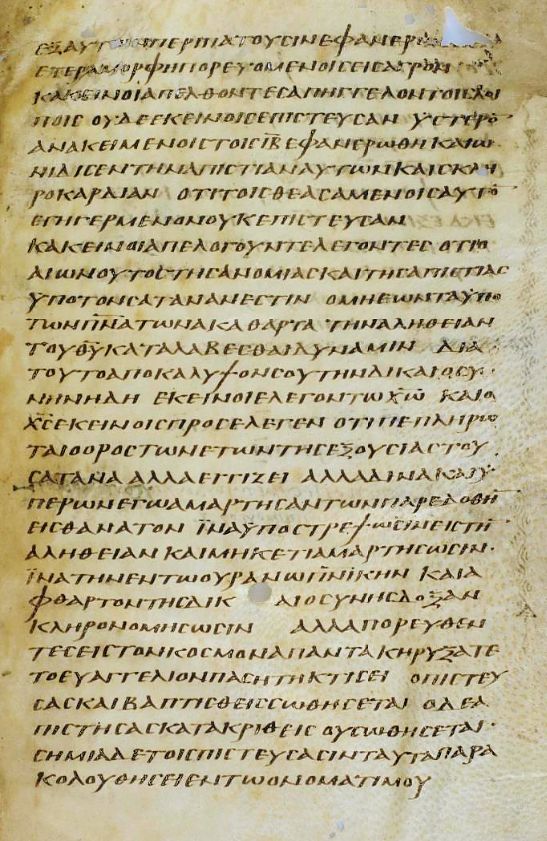 ΕΞΑΥΤΩΝΠΕΡΠΑΤΟΥϹΙΝΕΦΑΝΕΡ
ΕΤΕΡΑΜΟΡΦΗΠΟΡΕΥΟΜΕΝΟΙϹΕΙϹΑΓΡΟΝ
ΚΑΚΕΙΝΟΙΑΠΕΛΘΟΝΤΕϹΑΠΗΓΓΕΛΟΝΤΟΙϹΛΟΙ
ΠΟΙϹ ΟΥΔΕΕΚΕΙΝΟΙϹΕΠΙϹΤΕΥϹΑΝ ΥϹΤΕΡΟ̅
ΑΝΑΚΕΙΜΕΝΟΙϹΤΟΙϹΙ̅Β̅ΕΦΑΝΕΡΩΘΗ ΚΑΙΩ
ΝΙΔΙϹΕΝΤΗΝΑΠΙϹΤΙΑΝΑΥΤΩΝΚΑΙϹΚΛΗ
ΡΟΚΑΡΔΙΑΝ ΟΤΙΤΟΙϹΘΕΑϹΑΜΕΝΟΙϹΑΥΤΟ̅
ΕΓΗΓΕΡΜΕΝΟΝΟΥΚΕΠΙϹΤΕΥϹΑΝ
ΚΑΚΕΙΝΟΙΑΠΕΛΟΓΟΥΝΤΕΛΕΓΟΝΤΕϹ ΟΤΙΟ
ΑΙΩΝΟΥΤΟϹΤΗϹΑΝΟΜΙΑϹΚΑΙΤΗϹΑΠΙϹΤΙΑϹ
ΥΠΟΤΟΝϹΑΤΑΝΑΝΕϹΤΙΝ ΟΜΗΕΩΝΤΑΥΠΟ
ΤΩΝΠ̅Ν̅ΑΤΩΝΑΚΑΘΑΡΤΑ ΤΗΝΑΛΗΘΕΙΑΝ
ΤΟΥΘ̅Υ̅ΚΑΤΑΛΑΒΕϹΘΑΙΔΥΝΑΜΙΝ ΔΙΑ
ΤΟΥΤΟΑΠΟΚΑΛΥΨΟΝϹΟΥΤΗΝΔΙΚΑΙΟϹΥ
ΝΗΝΗΔΗ ΕΚΕΙΝΟΙΕΛΕΓΟΝΤΩΧ̅Ω̅ ΚΑΙΟ
Χ̅Ϲ̅ΕΚΕΙΝΟΙϹΠΡΟϹΕΛΕΓΕΝ ΟΤΙΠΕΠΛΗΡΩ
ΤΑΙΟΟΡΟϹΤΩΝΕΤΩΝΤΗϹΕΞΟΥϹΙΑϹΤΟΥ
ϹΑΤΑΝΑ ΑΛΛΑΕΓΓΙΖΕΙ ΑΛΛΑΔΙΝΑΚΑΙΥ
ΠΕΡΩΝΕΓΩΑΜΑΡΤΗϹΑΝΤΩΝΠΑΡΕΔΟΘΗ̅
ΕΙϹΘΑΝΑΤΟΝ ΪΝΑΫΠΟϹΤΡΕΨΩϹΙΝΕΙϹΤΗ̅
ΑΛΗΘΕΙΑΝ ΚΑΙΜΗΚΕΤΙΑΜΑΡΤΗϹΩϹΙΝ·
ΪΝΑΤΗΝΕΝΤΩΟΥΡΑΝΩΠ̅Ν̅ΙΚΗΝ ΚΑΙΑ
ΦΘΑΡΤΟΝΤΗϹΔΙΚ ΑΙΟϹΥΝΗϹΔΟΞΑΝ
ΚΛΗΡΟΝΟΜΗϹΩϹΙΝ ΑΛΛΑΠΟΡΕΥΘΕΝ
ΤΕϹΕΙϹΤΟΝΚΟϹΜΟΝΑΠΑΝΤΑΚΗΡΥΞΑΤΕ
ΤΟΕΥΑΓΓΕΛΙΟΝΠΑϹΗΤΗΚΤΙϹΕΙ ΟΠΙϹΤΕΥ
ϹΑϹΚΑΙΒΑΠΤΙϹΘΕΙϹϹΩΘΗϹΕΤΑΙ ΟΔΕΑ
ΠΙϹΤΗϹΑϹΚΑΤΑΚΡΙΘΕΙϹ ΟΥϹΩΘΗϹΕΤΑΙ·
ϹΗΜΙΑΔΕΤΟΙϹΠΙϹΤΕΥϹΑϹΙΝΤΑΥΤΑΠΑΡΑ
ΚΟΛΟΥΘΗϹΕΙΕΝΤΩΟΝΟΜΑΤΙΜΟΥ